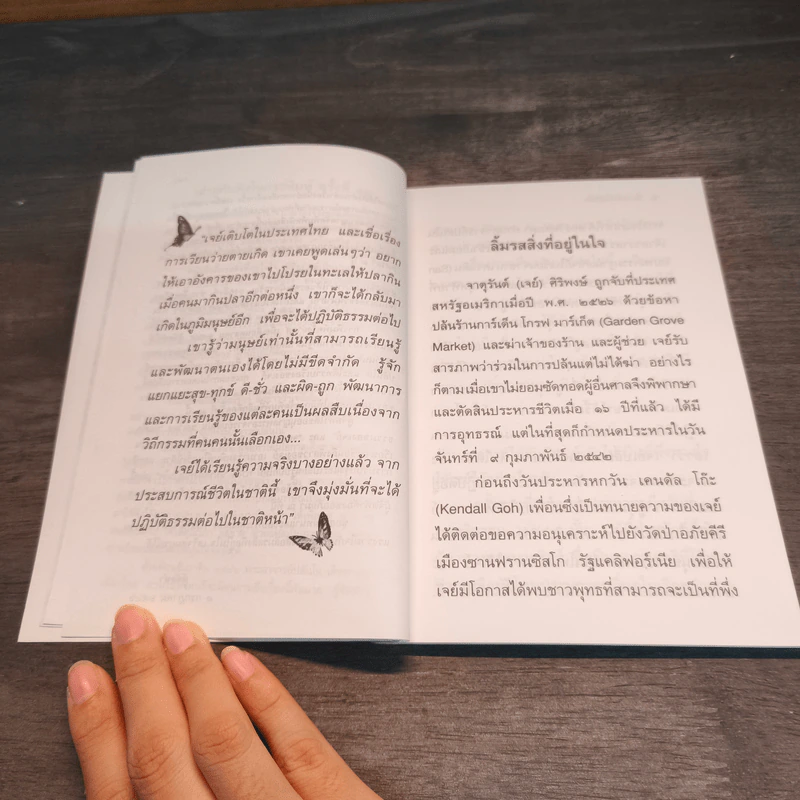 "เจย์เติบโตในประเทศไทย และเชื่อเรื่อง
การเวียนว่ายตายเกิด เขาเคยพูดเล่นๆว่า อยาก
ให้เอาอังคารของเขาไปโปรยในทะเลให้ปลากิน
เมื่อคนมากินปลาอีกต่อหนึ่ง เขาก็จะได้กลับมา
เกิดในภูมิมนุษย์อีก เพื่อจะได้ปฏิบัติธรรมต่อไป
เขารู้ว่ามนุษย์เท่านั้นที่สามารถเรียนรู้
และพัฒนาตนเองได้โดยไม่มีขีดจำกัด รู้จัก
แยกแยะสุข-ทุกข์ ดี-ชั่ว และผิด-ถูก พัฒนาการ
และการเรียนรู้ของแต่ละคนเป็นผลสืบเนื่องจาก
วิถีกรรมที่คนคนนั้นเลือกเอง...
เจย์ได้เรียนรู้ความจริงบางอย่างแล้ว จาก
ประสบการณ์ชีวิตในชาตินี้ เขาจึงมุ่งมั่นที่จะได้
ปฏิบัติธรรมต่อไปในชาติหน้า"
ลิ้มรสสิ่งที่อยู่ในใจ
จาตุรันต์ (เจย์) ศิริพงษ์ ถูกจับที่ประเทศ
สหรัฐอเมริกาเมื่อปี พ.ศ. ๒๕๒๖ ด้วยข้อหา
ปล้นร้านการ์เด็น โกรฟ มาร์เก็ต (Garden Grove
Market) และฆ่าเจ้าของร้าน และผู้ช่วย เจย์รับ
สารภาพว่าร่วมในการปล้นแต่ไม่ได้ฆ่า อย่างไร
ก็ตามเมื่อเขาไม่ยอมซัดทอดผู้อื่นศาลจึงพิพากษา
และตัดสินประหารชีวิตเมื่อ ๑๖ ปีที่แล้ว ได้มี
การอุทธรณ์ แต่ในที่สุดก็กำหนดประหารในวัน
จันทร์ที่ ๙ กุมภาพันธ์ ๒๕๔๒
ก่อนถึงวันประหารหกวัน เคนดัล โก๊ะ
(Kendall Goh) เพื่อนซึ่งเป็นทนายความของเจย์
ได้ติดต่อขอความอนุเคราะห์ไปยังวัดป่าอภัยคีรี
เมืองซานฟรานซิสโก รัฐแคลิฟอร์เนีย เพื่อให้
เจย์มีโอกาสได้พบชาวพุทธที่สามารถจะเป็นที่พึ่ง